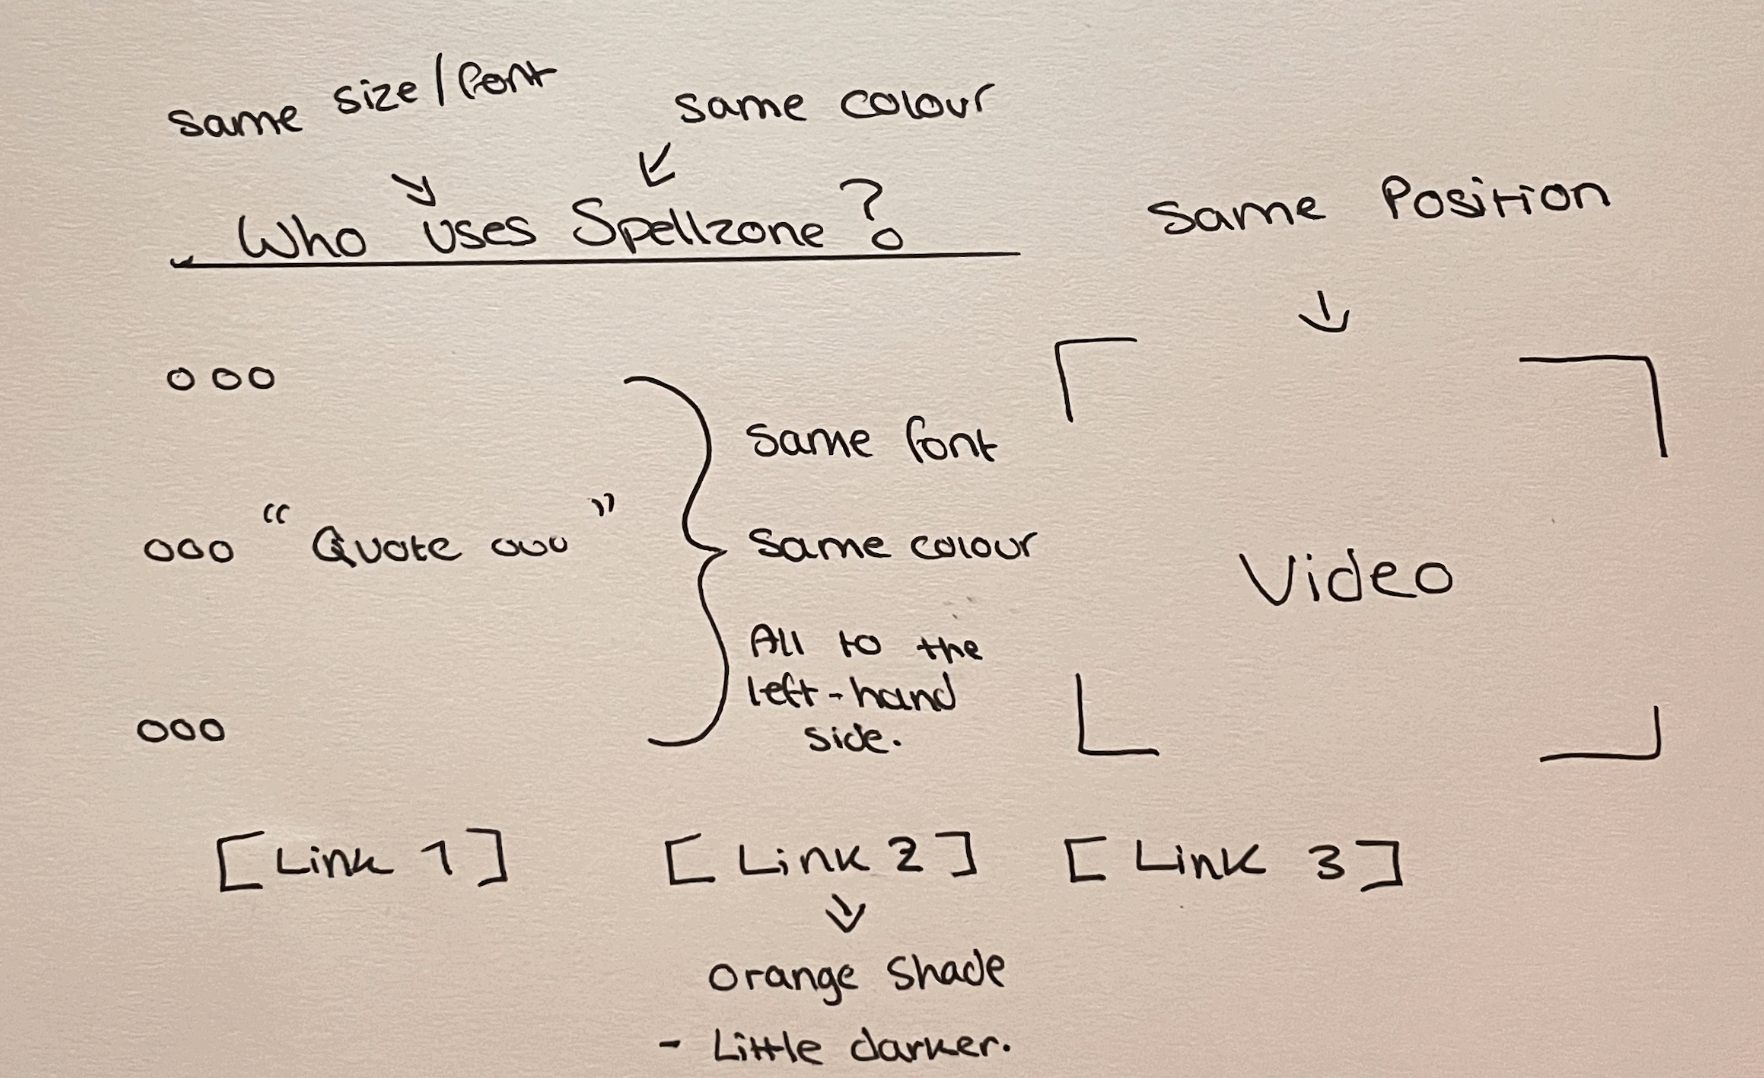 same size/font
same colour
Who uses Spellzone?
Same Position
ooo
Same font
ooo "Quote ooo"
Same colour
Video
All to the
left-hand
side.
ooo
[Link 1]
[Link 2]
[Link 3]
orange shade
- Little darker.